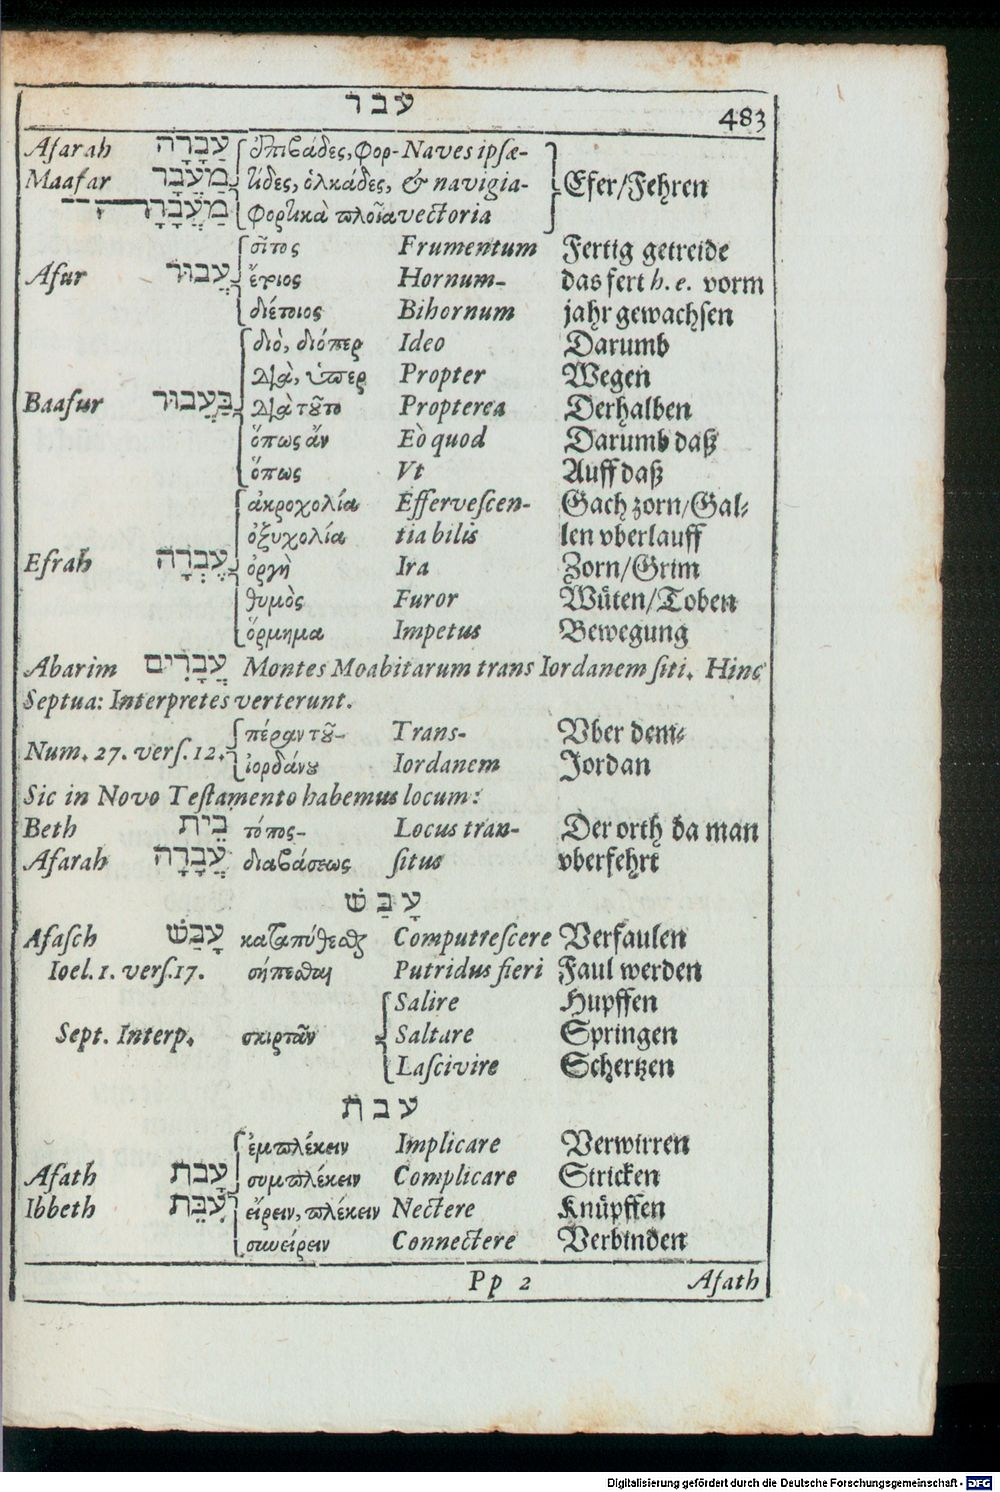 עבר
483
Afarah עֲבָרָה ἐπιβάδες, φορ- Naves ipsæ-
Maafar מַעֲבָר τίδες, ὁλκάδες, & navigia- Efer/Fehren
מַעֲבָרָה φορτικὰ πλοῖα vectoria
σῖτος Frumentum Fertig getreide
Afur עֲבוּר Hornum- das fert h. e. vorm
Bihornum jahr gewachsen
διὸ, διόπερ Ideo Darumb
διὰ, ὑπὲρ Propter Wegen
Baafur בַּעֲבוּר διὰ τοῦτο Propterea Derhalben
ὅπως ἂν Eò quod Darumb daß
ὅπως Vt Auff daß
ἀκροχολία Effervescen- Gach zorn/Gal-
ὀξυχολία tia bilis len vberlauff
Efrah עֶבְרָה ὀργὴ Ira Zorn/Grim
θυμὸς Furor Wüten/Toben
ὅρμημα Impetus Bewegung
Abarim עֲבָרִים Montes Moabitarum trans Iordanem siti. Hinc
Septua: Interpretes verterunt.
πέραν τοῦ- Trans- Vber dem-
Num. 27. vers. 12. ἰορδάνου Iordanem Jordan
Sic in Novo Testamento habemus locum:
Beth בֵית τόπος- Locus tran- Der orth da man
Afarah עֲבָרָה διαβάσεως situs vberfehrt
עָבַשׁ
Afasch עָבַשׁ καταπύθεσθαι Computrescere Verfaulen
Ioel. 1. vers. 17. σήπεσθαι Putridus fieri Faul werden
Salire Hupffen
Sept. Interp. σκιρτᾶν Saltare Springen
Lascivire Schertzen
עבת
ἐμπλέκειν Implicare Verwirren
Afath עָבַת συμπλέκειν Complicare Stricken
Ibbeth עִבֵּת εἴρειν, πλέκειν Nectere Knüpffen
συνείρειν Connectere Verbinden
Pp 2 Afath
Digitalisierung gefördert durch die Deutsche Forschungsgemeinschaft - DFG